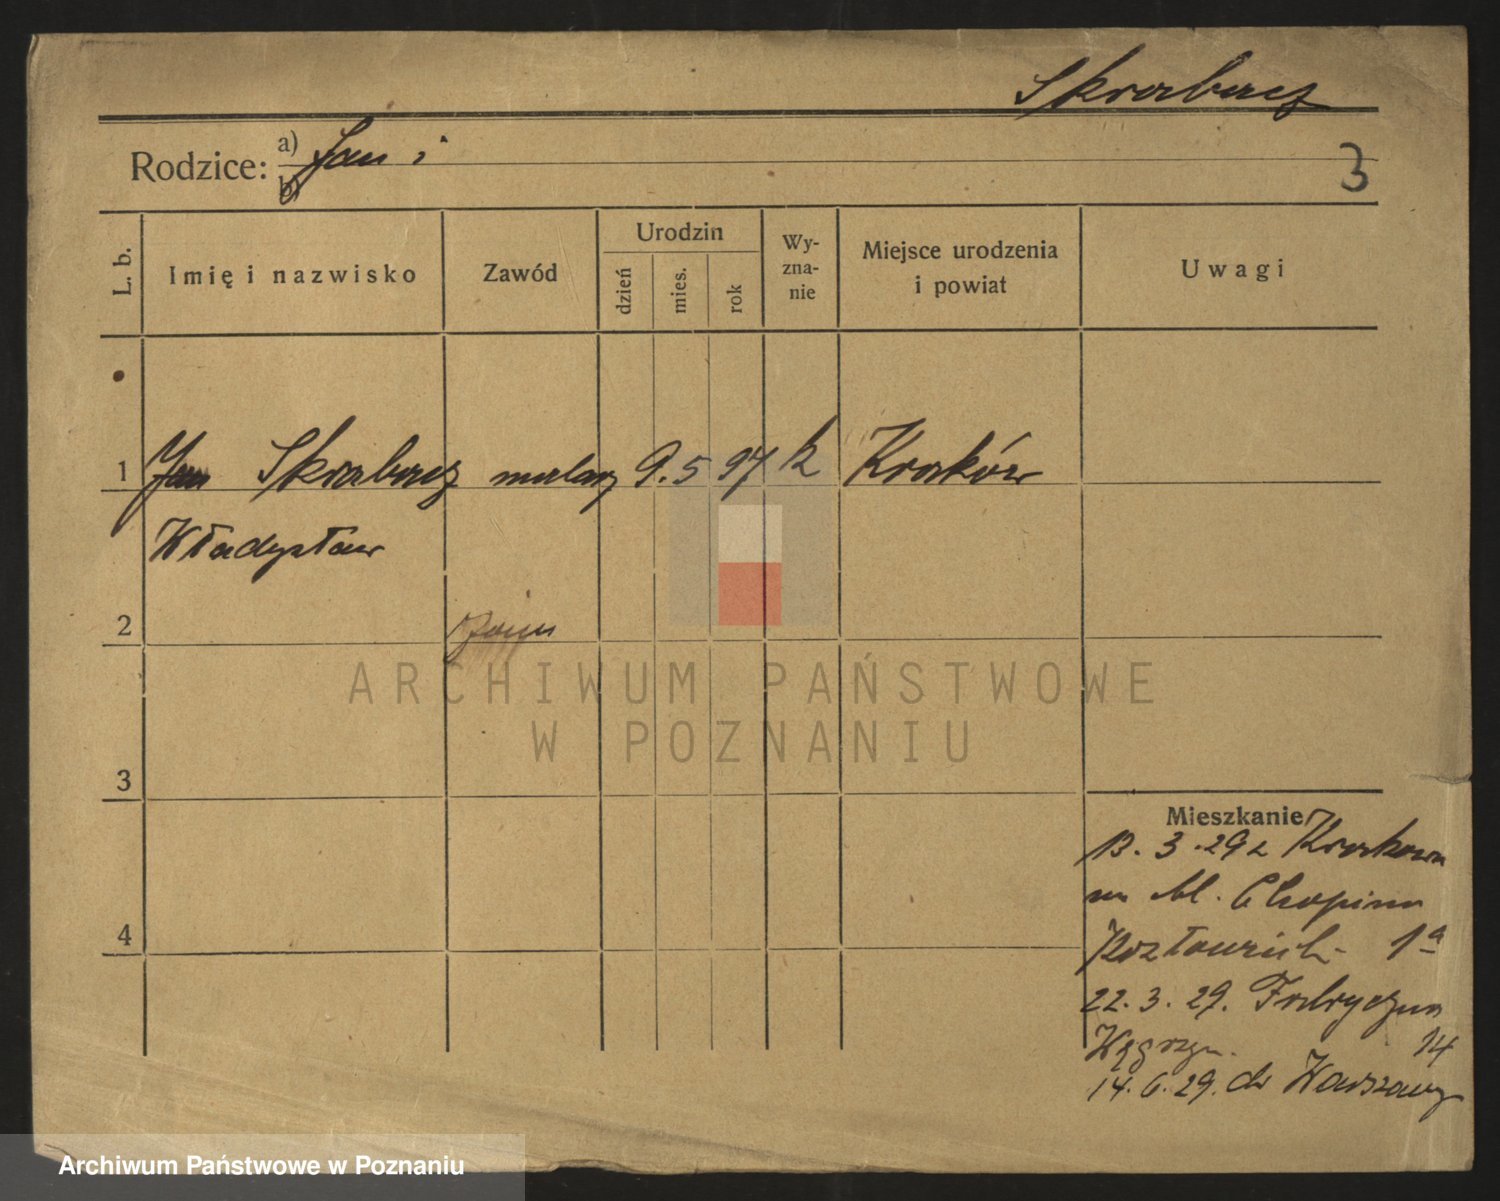 Skrabacz
Rodzice: a) Jan i
b)
3
L. b.
Imię i nazwisko
Zawód
Urodzin
dzień
mies.
rok
Wy-
zna-
nie
Miejsce urodzenia
i powiat
Uwagi
1 Jan Skrabacz malarz 9. 5 97 k Kraków
Władysław
2
3
4
Mieszkanie
13. 3. 29 z Krakowa
na Al. Chopina
1a
22. 3. 29. Fabryczna
14
14. 6. 29. do Warszawy
ARCHIWUM PAŃSTWOWE
W POZNANIU
Archiwum Państwowe w Poznaniu